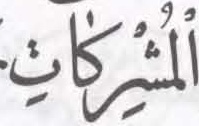 الْمُشْرِكَاتِ